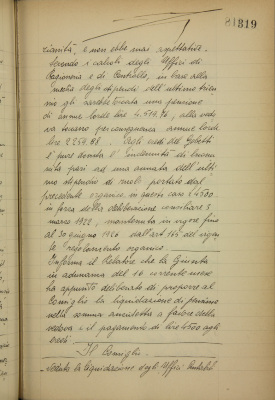 819
zianità, e non ebbe mai aspettative.
Secondo i calcoli degli Uffici di
Ragioneria e di Controllo, in base alla
media degli stipendi dell'ultimo trien
nio gli sarebbe toccata una pensione
di annue lorde lire 4.514,76, alla vedo
va tocca per conseguenza annue lorde
lire 2257.88. Degli eredi del
è pure dovuta l'indennità di buona
uscita pari ad una annata dell'ulti
mo stipendio di ruolo portato dal
precedente organico, in questo caso £ 4500
in forza della deliberazione consiliare 3
marzo 1922, mantenuta in vigore fino
al 30 giugno 1926 dall'art. 165 del vigen
te regolamento organico.
Informa il Relatore che la Giunta
in adunanza del 10 corrente mese
ha appunto deliberato di proporre al
Consiglio la liquidazione di pensione
nella somma anzidetta a favore della
vedova e il pagamento di lire 4500 agli
eredi.
Il Consiglio
Veduta la liquidazione degli Uffici